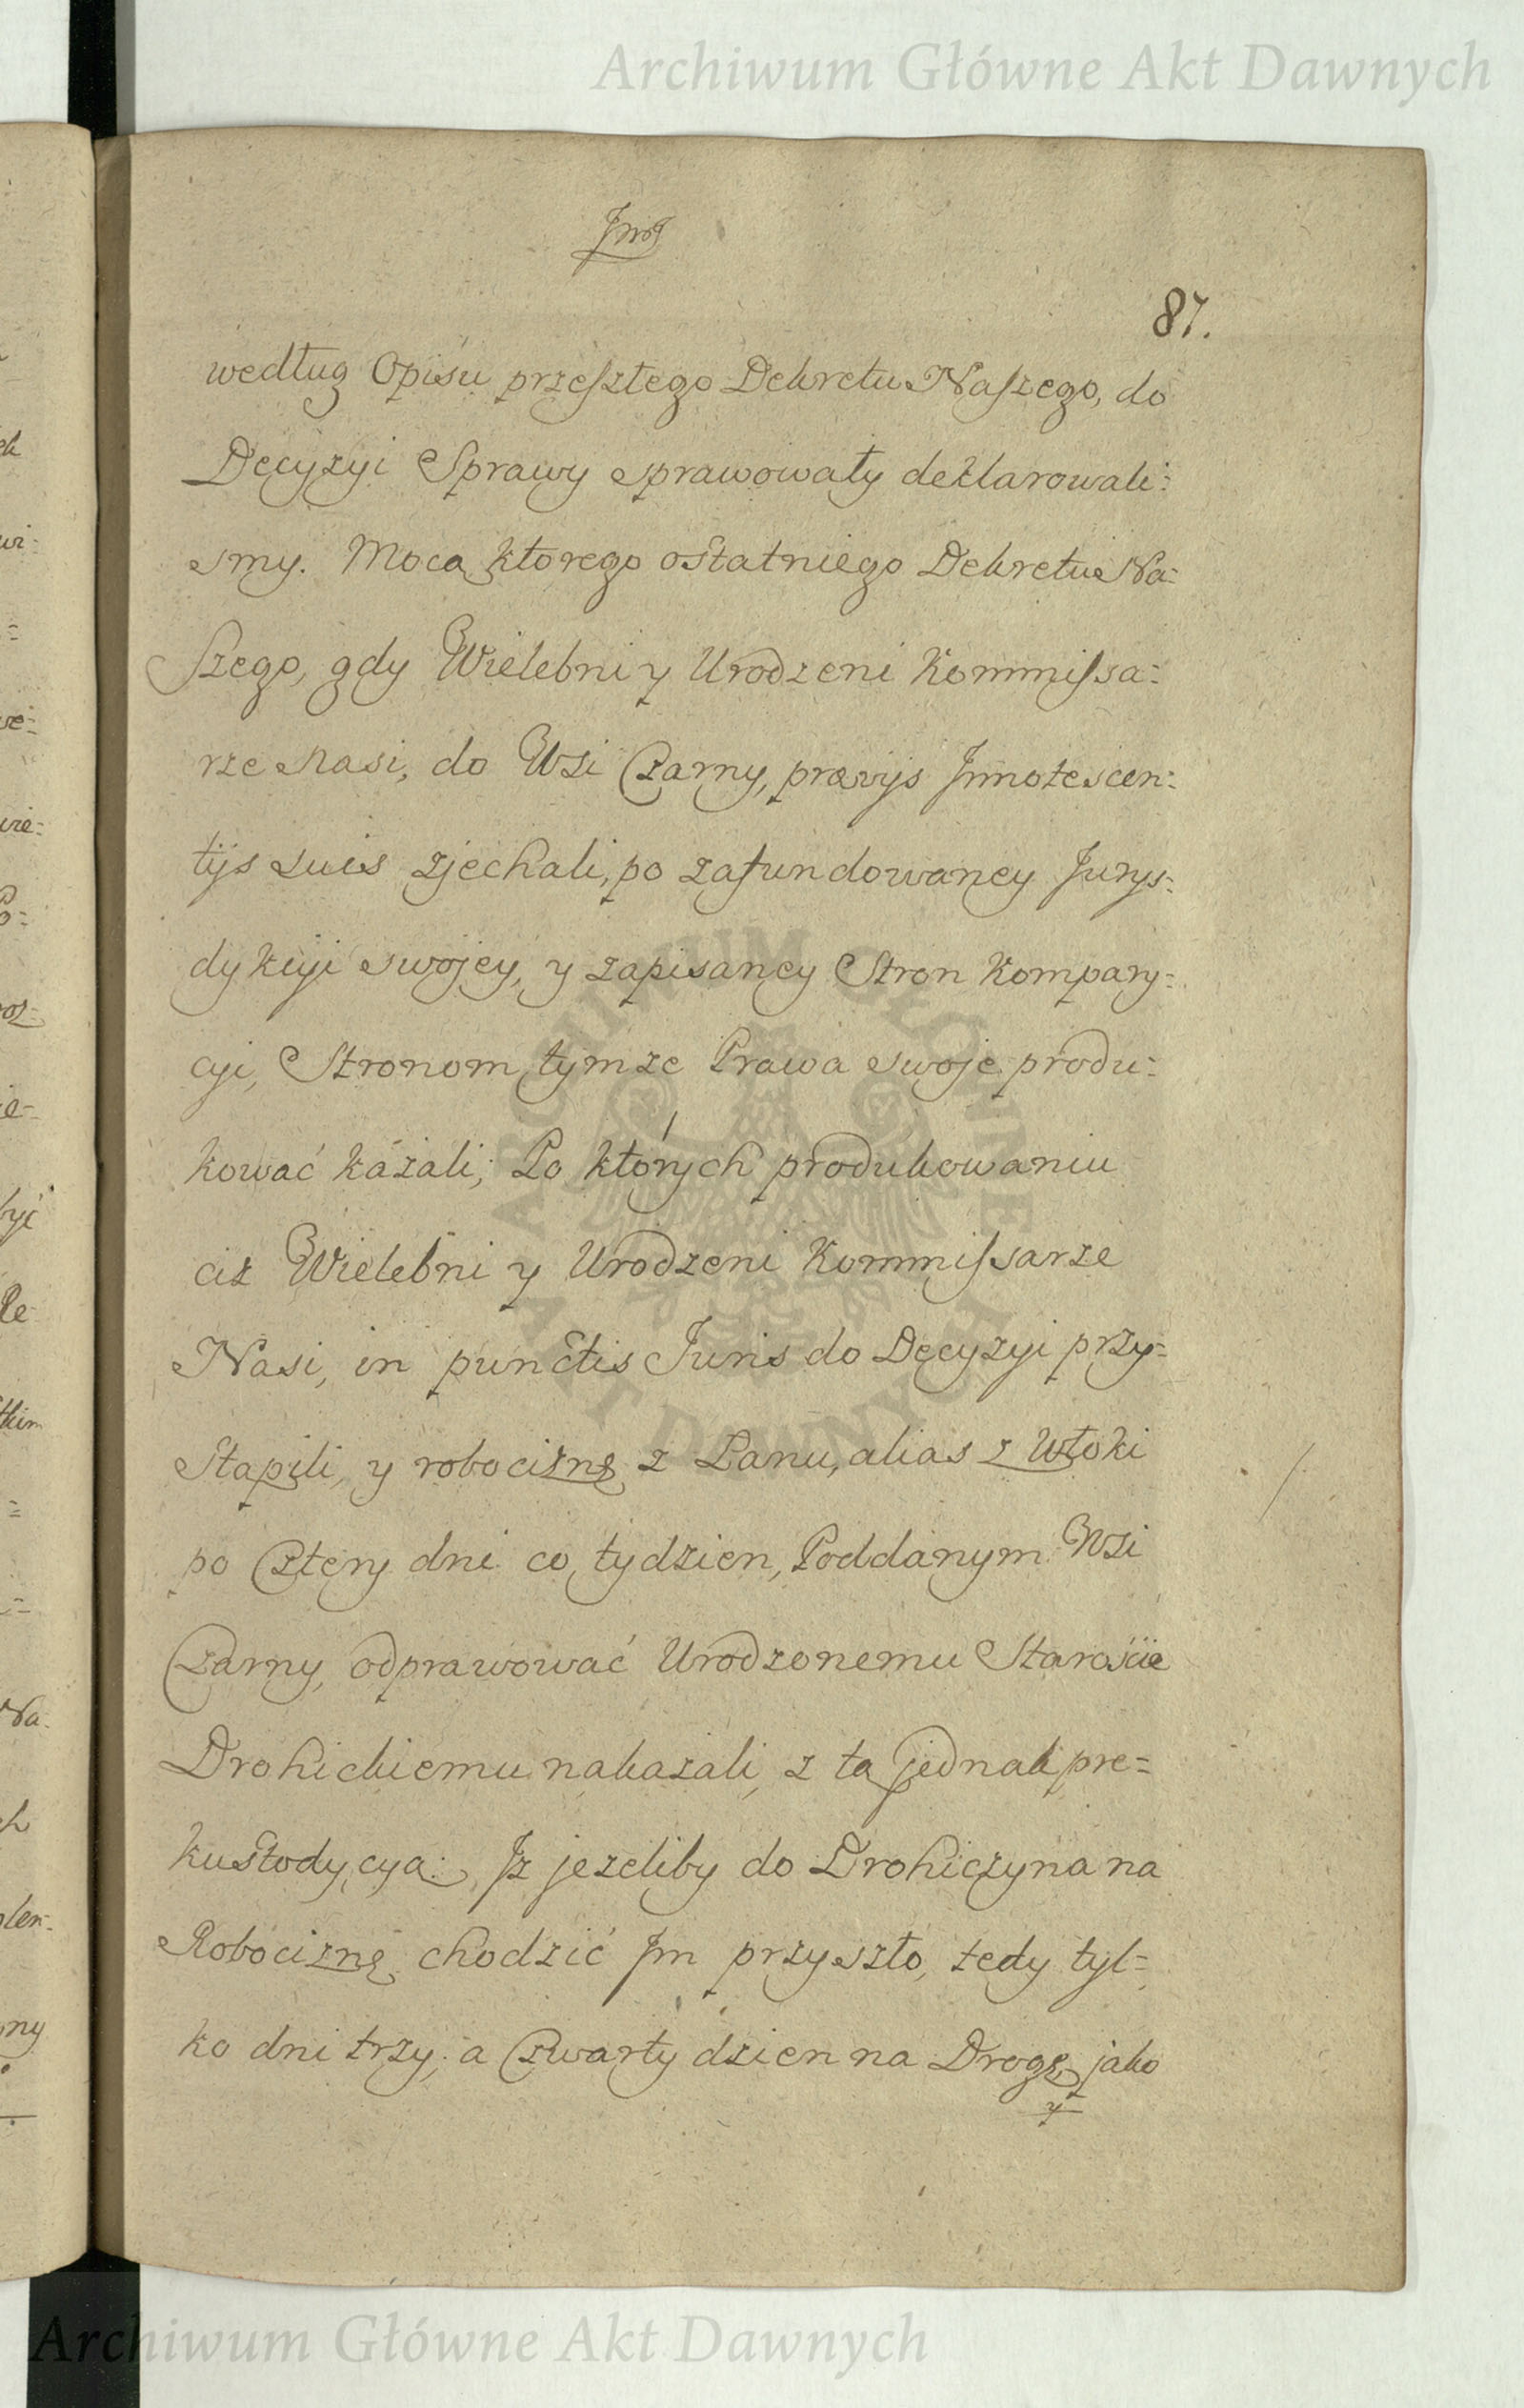 Archiwum Główne Akt Dawnych
87.
według Opisu przeszłego Dekretu Naszego, do
Decyzyi Sprawy sprawowały deklarowali:
smy. Mocą ktorego ostatniego Dekretu Na:
szego, gdy Wielebni y Urodzeni Kommissa:
rze Nasi, do Wsi Czarny, prævijs Innotescen:
tijs suis zjechali, po zafundowaney Jurys:
dykcyi swojey, y zapisaney Stron Kompary:
cyi, Stronom tymże Prawa swoje produ:
kować kazali; Po których produkowaniu
ciż Wielebni y Urodzeni Kommissarze
Nasi, in punctis Juris do Decyzyi przy=
stąpili, y robociznę z Łanu, alias z Włoki
po Cztery dni co tydzien, Poddanym Wsi
Czarny, odprawować Urodzonemu Starośćie
Drohickiemu nakazali, z tą jednak pre=
kustodycyą: Iż jeżeliby do Drohiczyna na
Robociznę chodzić Im przyszło, tedy tyl=
ko dni trzy, a Czwarty dzien na Drogę, jako
y
ARCHIWUM GŁÓWNE AKT DAWNYCH
Archiwum Główne Akt Dawnych